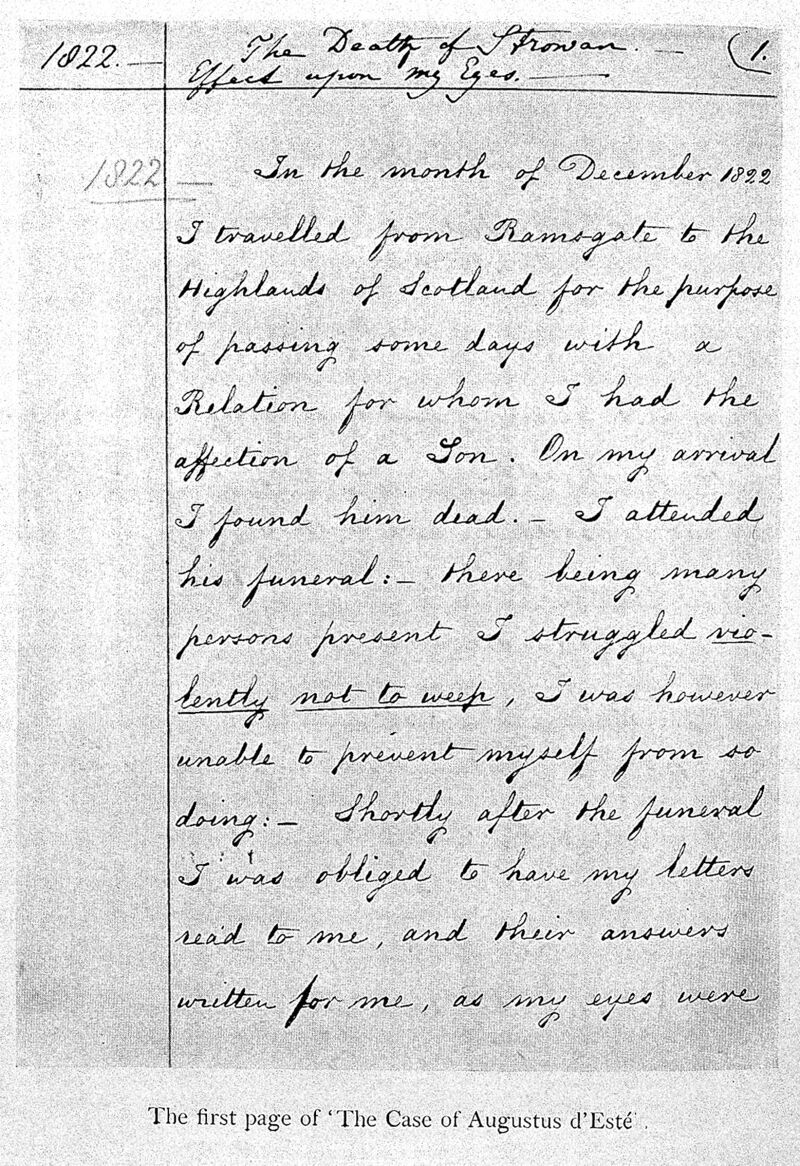 1822. — The Death of Strowan. — (1.
Effect upon my Eyes. —
1822 — In the month of December 1822
I travelled from Ramsgate to the
Highlands of Scotland for the purpose
of passing some days with a
Relation for whom I had the
affection of a Son. On my arrival
I found him dead. — I attended
his funeral: — there being many
persons present I struggled vio-
lently not to weep, I was however
unable to prevent myself from so
doing: — Shortly after the funeral
I was obliged to have my letters
read to me, and their answers
written for me, as my eyes were
The first page of 'The Case of Augustus d'Esté'.